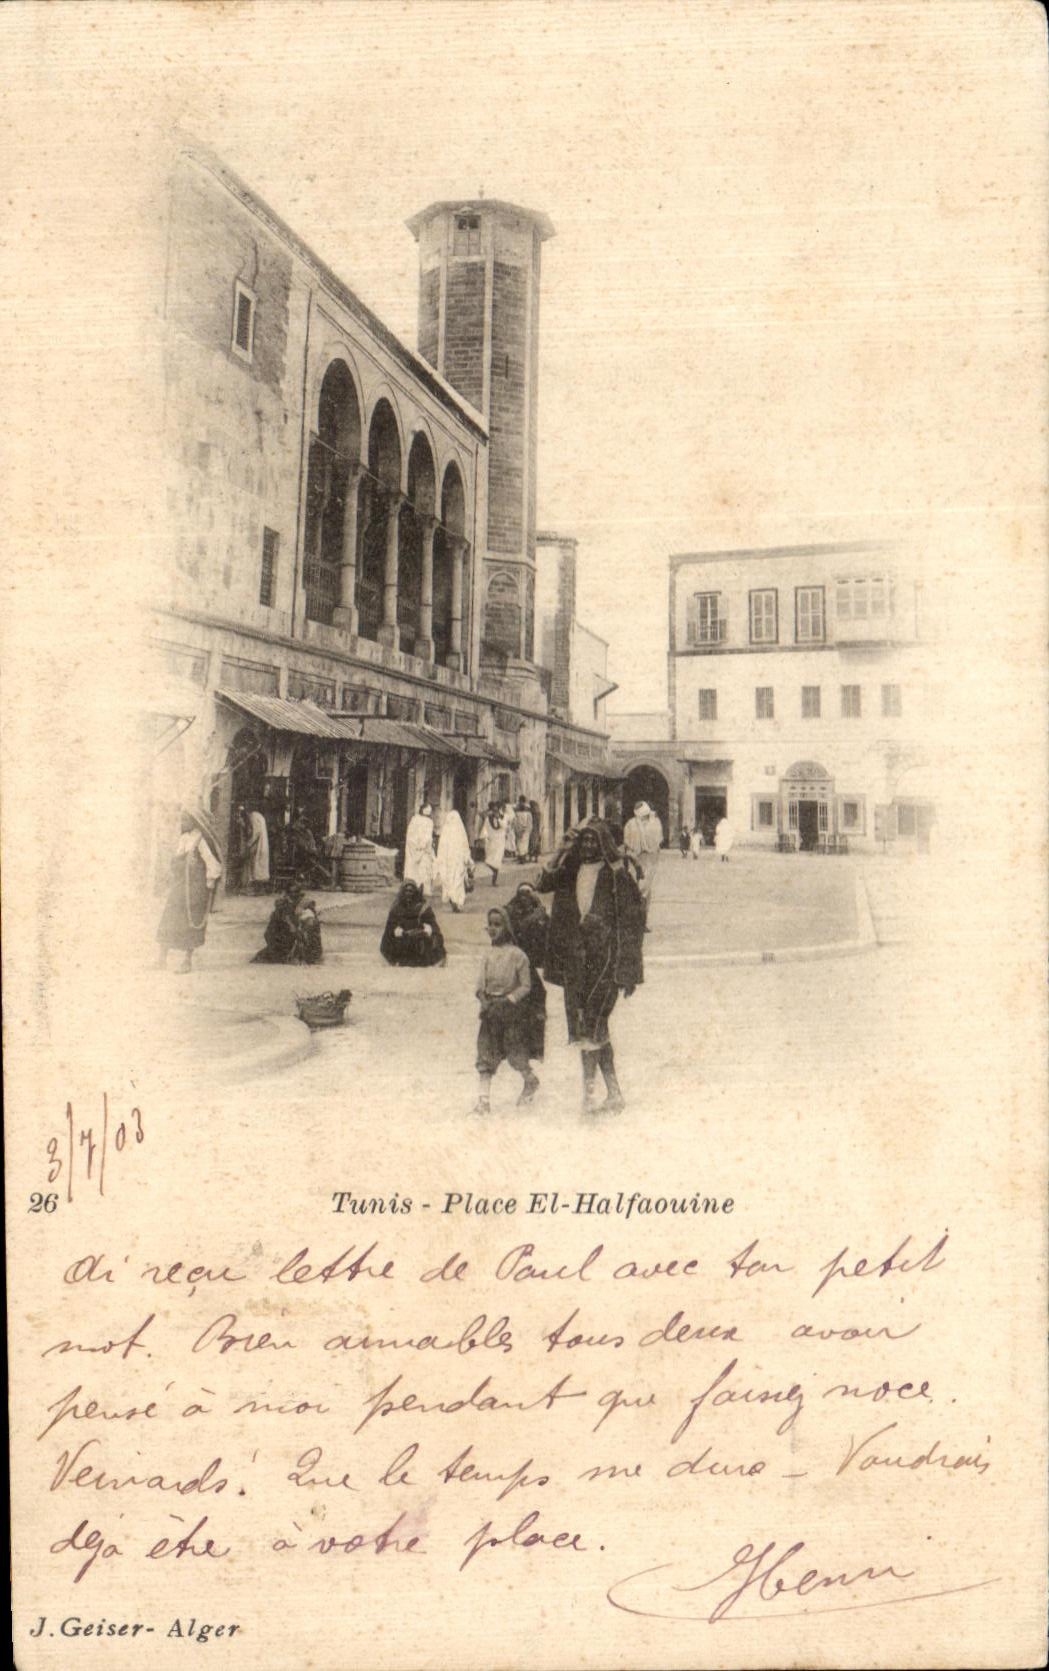 3/7/03
26
Tunis - Place El-Halfaouine
Ai reçu lettre de Paul avec ton petit
mot. Bien aimables tous deux avoir
pensé à moi pendant que faisiez noce.
Veinards! Que le temps me dure - Voudrais
déjà être à votre place.
Henri
J. Geiser - Alger